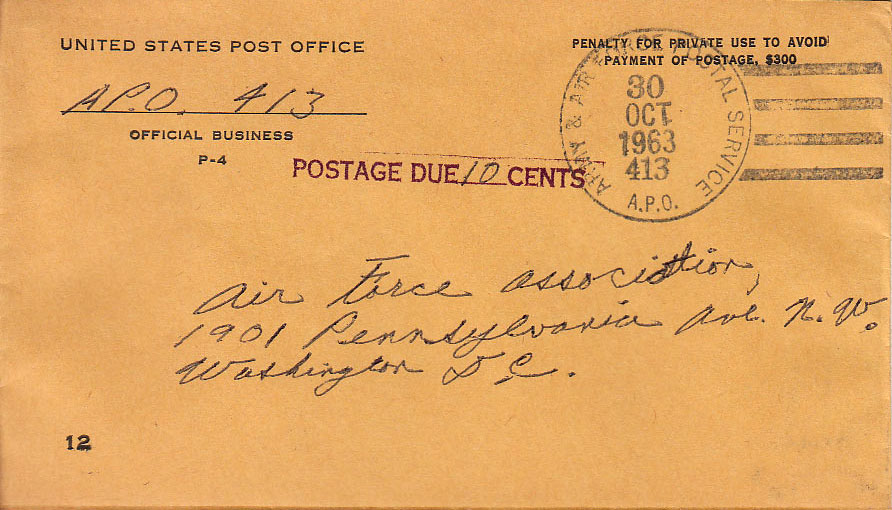 UNITED STATES POST OFFICE
A.P.O. 413
OFFICIAL BUSINESS
P-4
PENALTY FOR PRIVATE USE TO AVOID
PAYMENT OF POSTAGE, $300
ARMY & AIR FORCE POSTAL SERVICE
30
OCT
1963
413
A.P.O.
POSTAGE DUE 10 CENTS
Air Force Association,
1901 Pennsylvania Ave. N.W.
Washington D C.
12